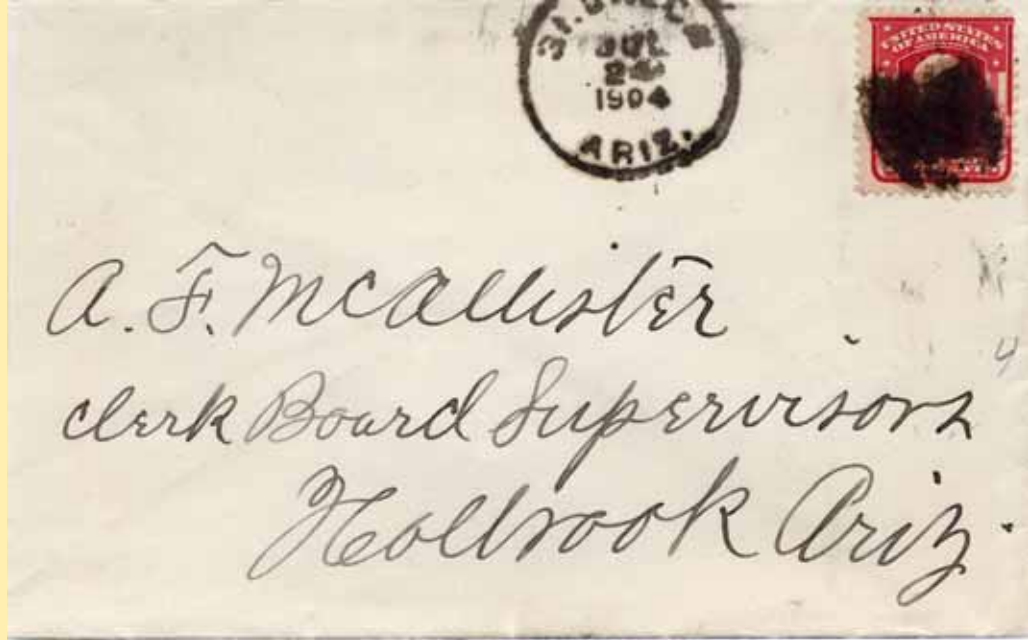 JUL
24
1904
ARIZ.
UNITED STATES
OF AMERICA
A. F. McAllister
Clerk Board Supervisors
Holbrook Ariz.